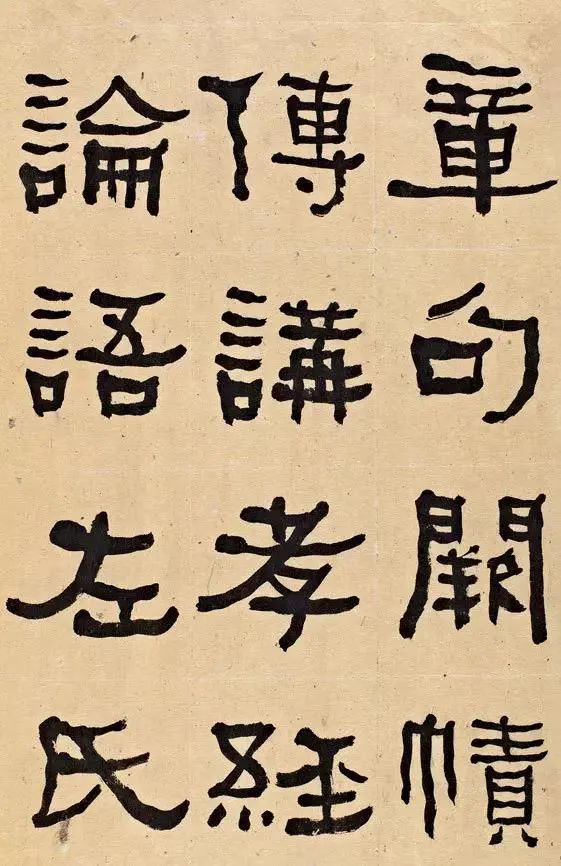 章句闕幘
傳講孝經
論語左氏